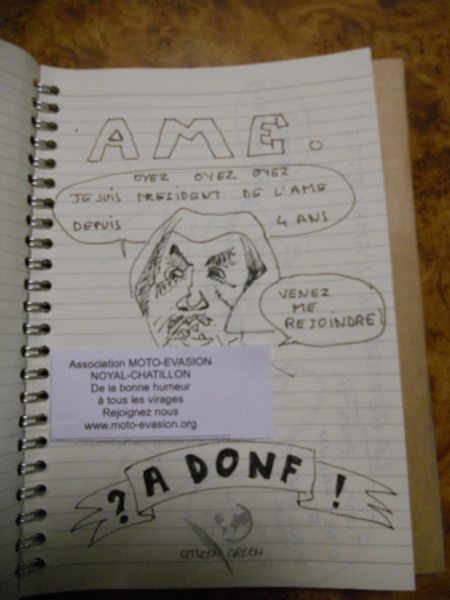 AME.
OYEZ OYEZ OYEZ
JE SUIS PREZIDENT DE L'AME
DEPUIS 4 ANS
VENEZ
ME
REJOINDRE!
Association MOTO-EVASION
NOYAL-CHATILLON
De la bonne humeur
à tous les virages
Rejoignez nous
www.moto-evasion.org
? A DONF !
CITIZEN GREEN